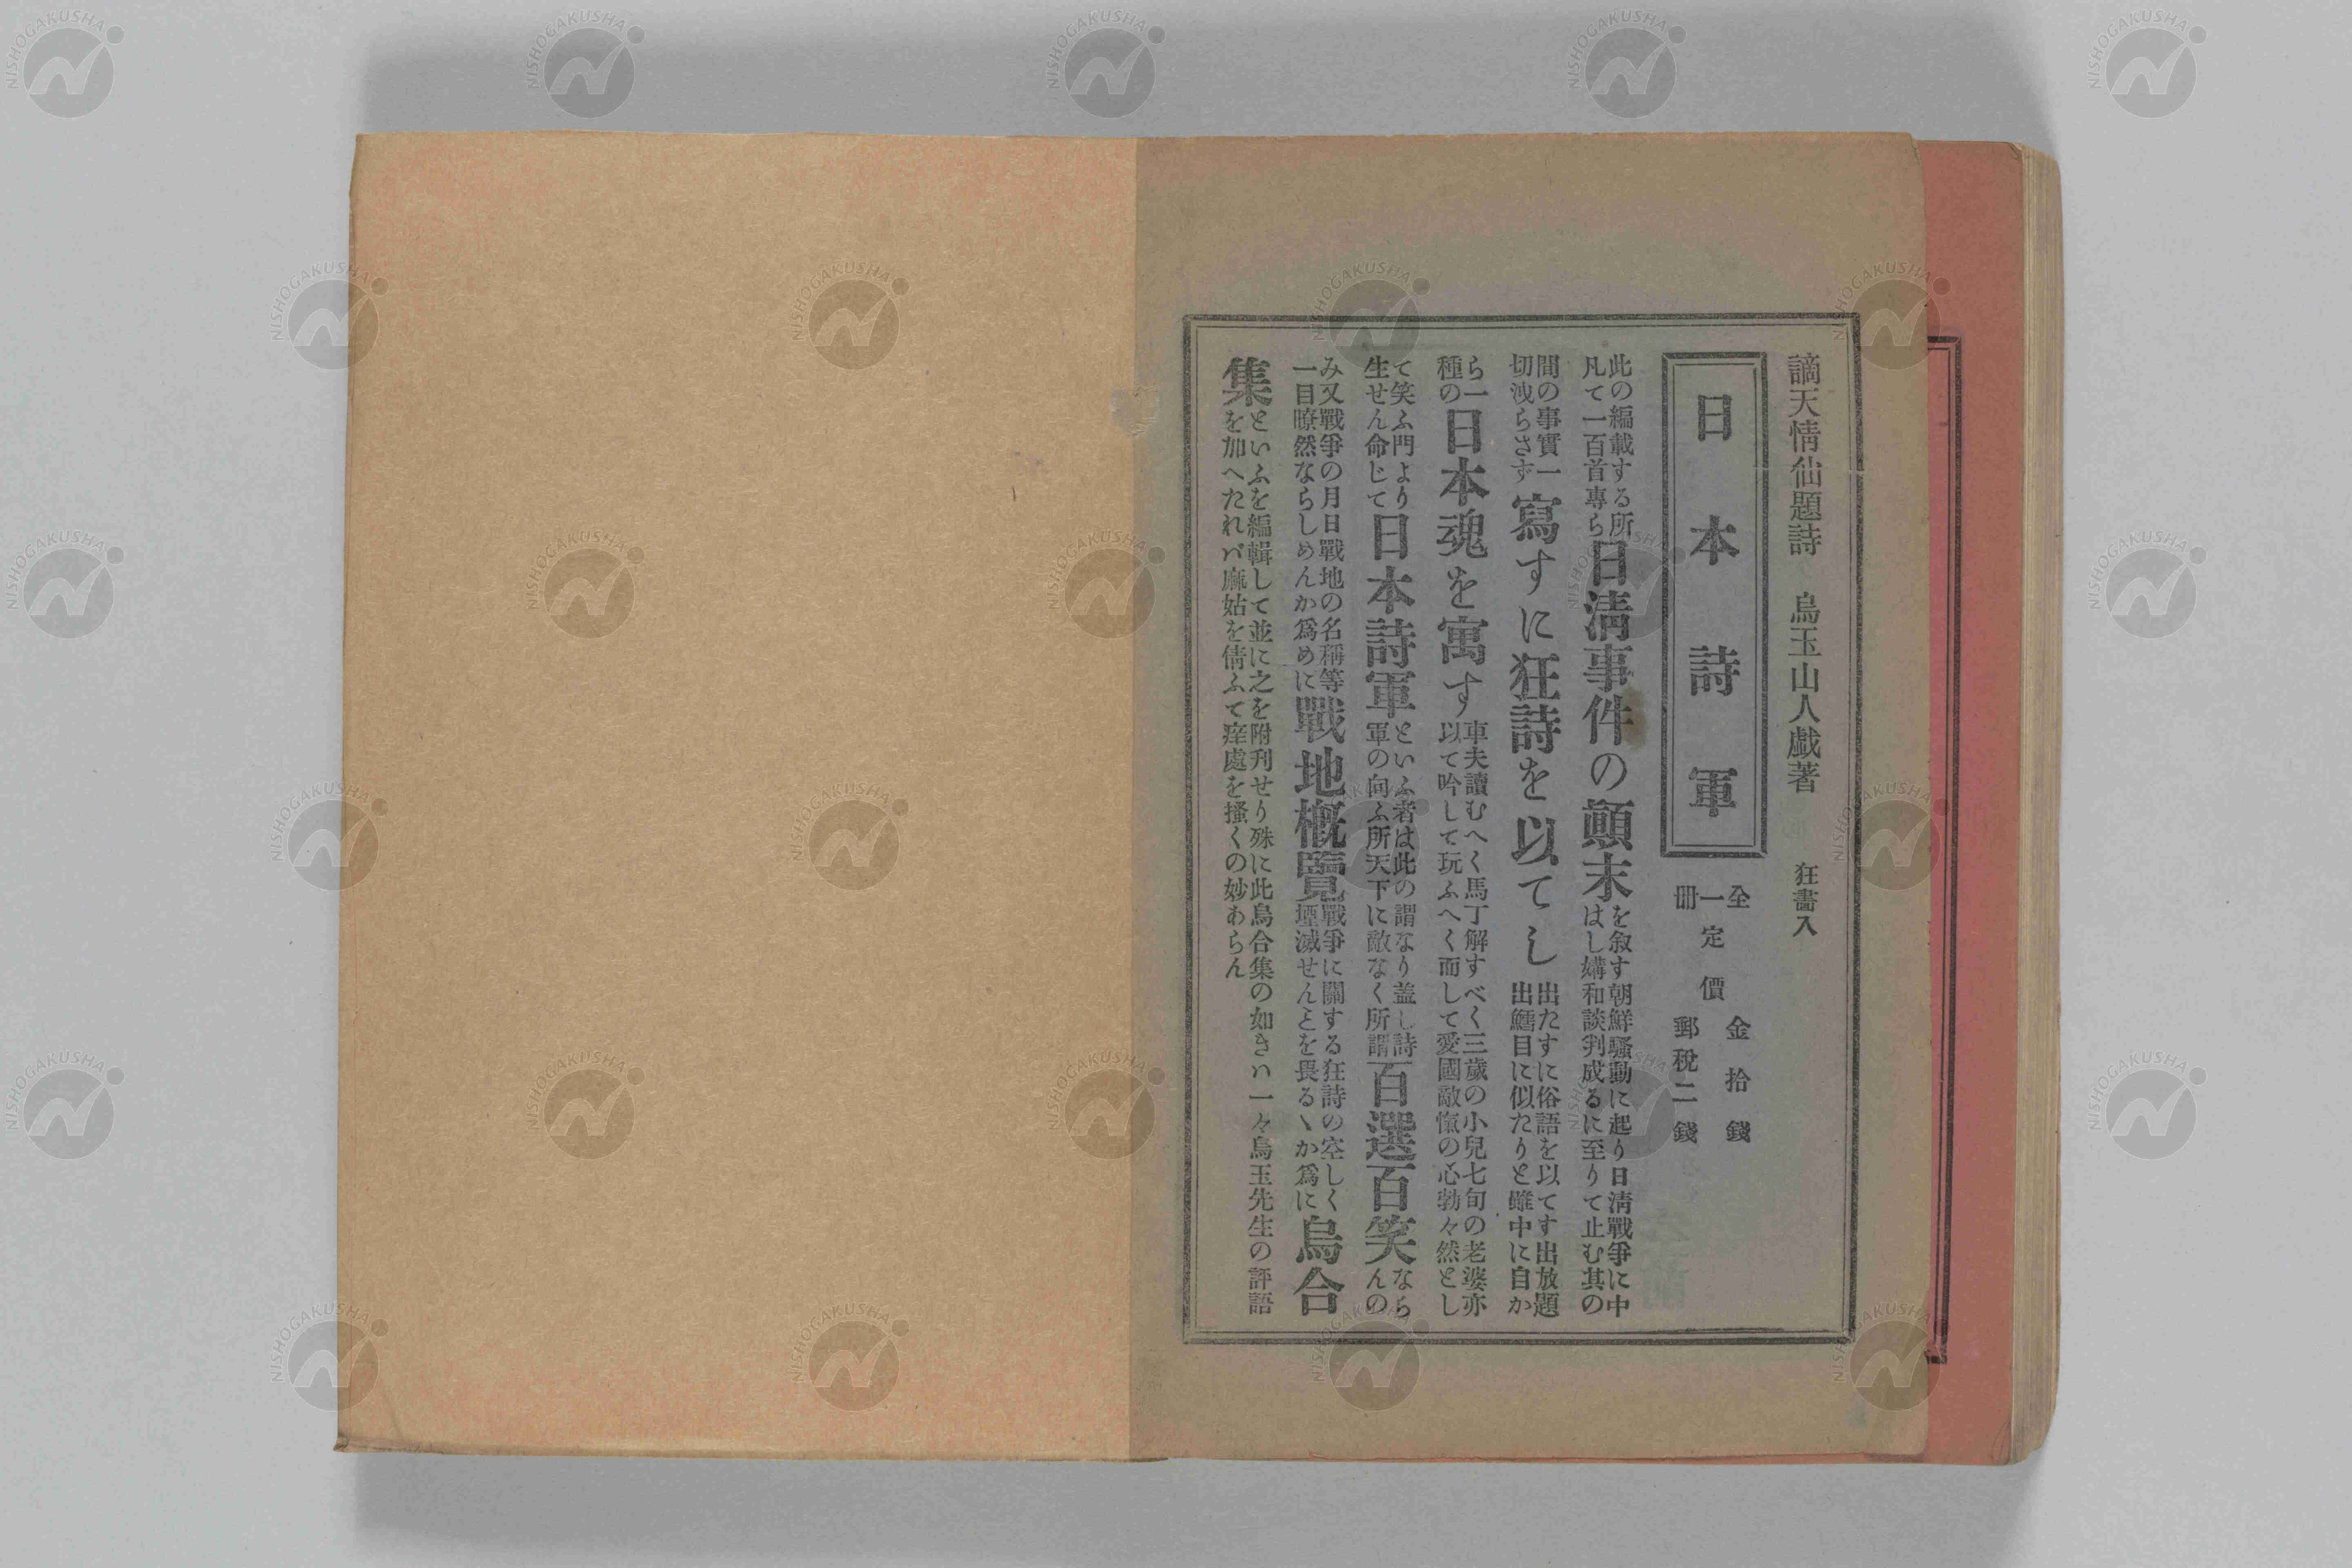 謫天情仙題詩 烏玉山人戯著 狂畵入
日本詩軍
全一冊
定價
金拾錢
郵税二錢
此の編載する所
凡て一百首專ら
日清事件の顚末
を叙す朝鮮騷動に起り日清戰爭に中
はし媾和談判成るに至りて止む其の
間の事實一
切洩らさず
寫すに狂詩を以てし
出たすに俗語を以てす出放題
出鱈目に似たりと雖中に自か
ら一
種の
日本魂を寓す
車夫讀むへく馬丁解すべく三歳の小兒七旬の老婆亦
以て吟して玩ふへく而して愛國敵愾の心勃々然とし
て笑ふ門より
生せん命じて
日本詩軍
といふ者は此の謂なり盖し詩
軍の向ふ所天下に敵なく所謂
百選百笑
なら
んの
み又戰爭の月日戰地の名稱等
一目瞭然ならしめんか爲めに
戰地概覽
戰爭に關する狂詩の空しく
堙滅せんとを畏るヽか爲に
烏合
集
といふを編輯して並に之を附刊せり殊に此烏合集の如きハ一々烏玉先生の評語
を加へたれバ麻姑を倩ふて痒處を搔くの妙あらん
NISHOGAKUSHA